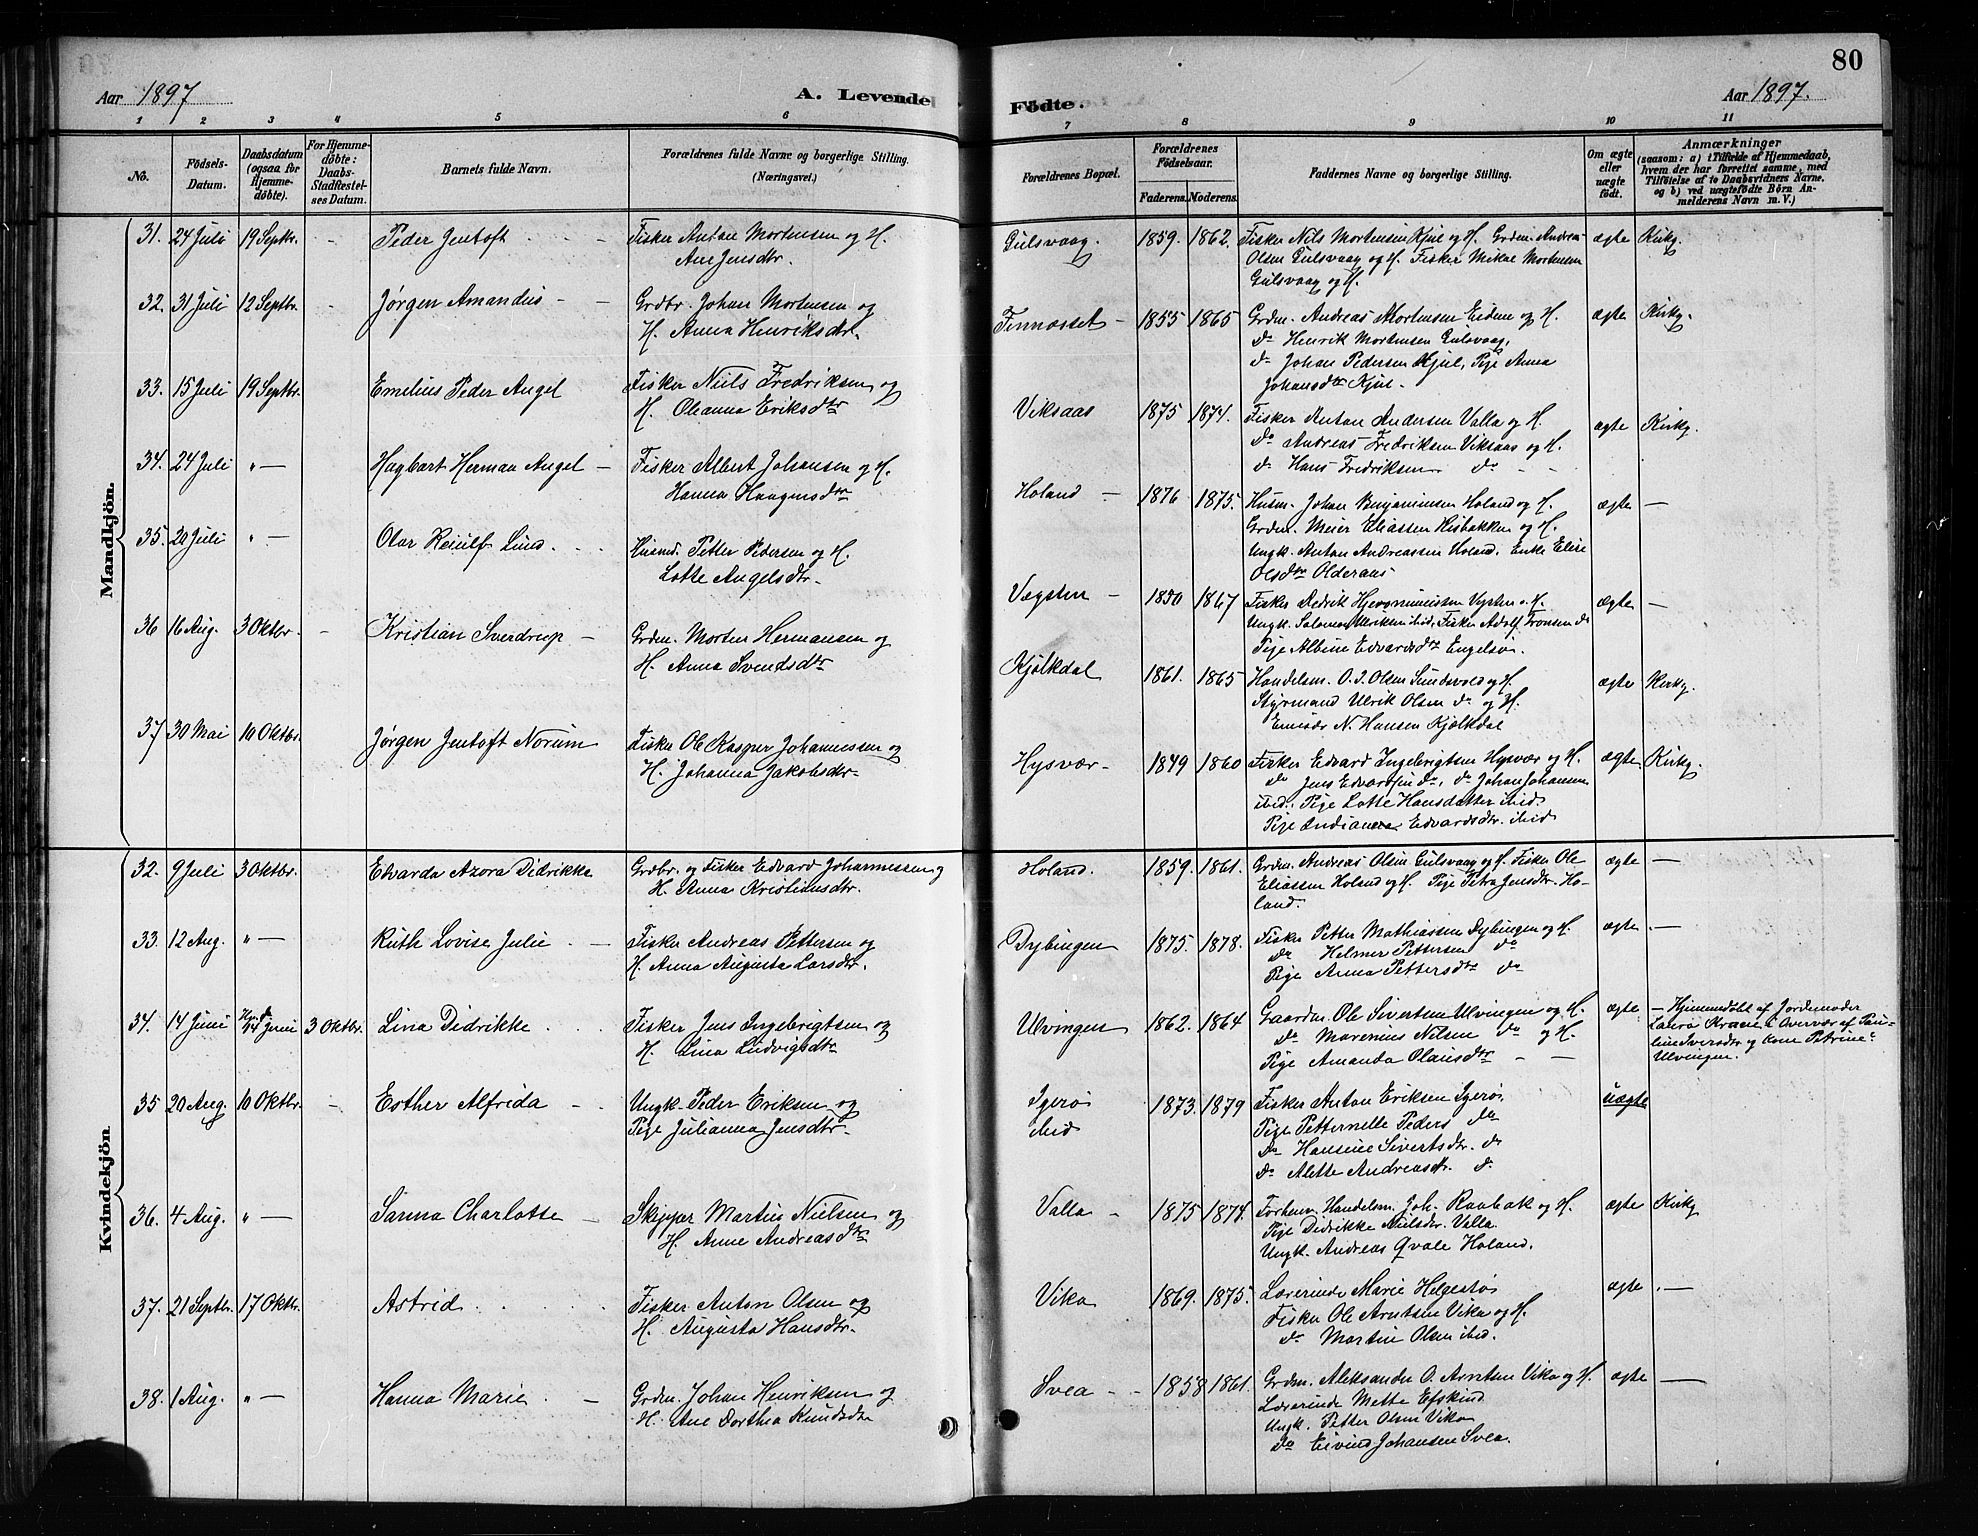 80
Aar 1897
A. Levende Födte.
Aar 1897.
1 2 3 4 5 6 7 8 9 10 11
No.
Födsels-Datum.
Daabsdatum (ogsaa for Hjemmedøbte).
For Hjemmedøbte: Daabs-Stadfæstelses Datum.
Barnets fulde Navn.
Forældrenes fulde Navne og borgerlige Stilling. (Næringsvei.)
Forældrenes Bopæl.
Forældrenes Födselsaar.
Faderens. Moderens.
Faddernes Navne og borgerlige Stilling.
Om ægte eller uægte födt.
Anmærkninger
(saasom: a) i Tilfælde af Hjemmedaab, hvem der har forrettet samme, med Tilföielse af to Daabsvidners Navne, og b) ved uægtefödte Börn Anmelderens Navn m. V.)
Mandkjön.
31. 24 Juli 19 Septbr. - Peder Jentoft - -
Fisker Anton Mortensen og H.
Ane Jensdtr.
Gulsvaag. 1859. 1862.
Fisker Nils Mortensen Kjul og H. Grdm. Andreas
Olsen Gulsvaag og H. Fisker Mikal Mortensen
Gulsvaag og H.
ægte Kirkg.
32. 31 Juli 12 Septbr. - Jørgen Amandus - -
Grdbr. Johan Mortensen og
H. Anna Henriksdtr.
Finnæset - 1855 1865
Grdm. Andreas Mortensen Eidem og H.
do Henrik Mortensen Gulsvaag,
do Johan Pedersen Kjul, Pige Anna
Johansdtr Kjul.
ægte Kirkg.
33. 15 Juli 19 Septbr. Emelius Peder Angel
Fisker Niels Fredriksen og
H. Oleanna Eriksdtr
Viksaas 1875 1874.
Fisker Anton Andersen Valla og H.
do Andreas Fredriksen Viksaas og H.
do Hans Fredriksen do - -
ægte Kirkg.
34. 24 Juli " — Hagbart Herman Angel —
Fisker Albert Johansen og H.
Hanna Haagensdtr
Holand — 1876 1875.
Husm. Johan Benjaminsen Holand og H.
Grdm. Meier Eliassen Risbakken og H.
Ungk. Anton Andreassen Holand, Enke Elise
Olsdtr Olderaas
ægte —
35. 20 Juli " — Olar Reiulf Lund. - -
Husmd. Petter Pedersen og H.
Lotte Angelsdtr.
Vægsten — 1850 1867
ægte —
Pige Albine Edvardsdtr Engelsø.
36 16 Aug. 3 Oktbr. - Kristian Sverdrup —
Grdm. Morten Hermansen og
H. Anna Svendsdtr
Kjølkdal 1861. 1865
Handelsm. O. J. Olsen Sundsvold og H.
Styrmand Ulrik Olsen do og H.
N. Hansen Kjølkdal
ægte Kirkg.
37 30 Mai 10 Oktbr. Jørgen Jentoft Norum
Fisker Ole Kasper Johannessen og
H. Johanna Jakobsdtr.
Hysvær - 1849 1860
Fisker Edvard Ingebrigtsen Hysvær og H.
do Jens Edvardsen do, do Johan Johansen
ibid., Pige Lotte Hansdatter ibid
Pige Indianna Edvardsdtr. ibid
ægte. Kirkg.
Kvindekjön
32. 9 Juli 3 Oktbr. Edvarda Azora Didrikke
Grdbr. og Fisker Edvard Johannessen og
H. Anna Kristiansdtr.
Holand. 1859. 1861.
Grdm. Andreas Olsen Gulsvaag og H. Fisker Ole
Eliassen Holand og H. Pige Petra Jensdtr. Ho-
land.
ægte —
33. 12 Aug. " — Ruth Lovise Julie - —
Fisker Andreas Pettersen og
H. Anna Augusta Larsdtr.
Dybingen 1875. 1878.
Fisker Petter Mathiassen Dybingen og H.
do Helmer Pettersen do
Pige Anna Pettersdtr do
ægte. —
34. 14 Juni 14 Juni 3 Oktbr. Lina Didrikke - -
Fisker Jens Ingebrigtsen og
H. Lina Ludvigsdtr
Ulvingen 1862. 1864
Gaardm. Ole Sivertsen Ulvingen og H.
do Marenius Nilsen do og H.
Pige Amanda Olausdtr — —
ægte — Hjemmedøbt af Jordemoder
i Overvær af Pau-
line Iversdtr og Kone Petrine
Ulvingen.
35 20 Aug. 10 Oktbr. - Esther Alfrida - -
Ungk. Peder Eriksen og
Pige Julianna Jensdtr.
Igerø
ibid
1873. 1879
Fisker Anton Eriksen Igerø
Pige Petternelle Peders do
Do Hansine Sivertsdtr. do
Do Alette Andreasdtr. do
uægte
36. 4 Aug. " — Sanna Charlotte —
Skipper Martin Nielsen og
H. Anne Andreasdtr
Valla - 1875 1874.
Forhenv. Handelsm. Joh. Raabak og H.
Pige Didrikke Nielsdtr. Valla
Ungk. Andreas Qvale Holand.
ægte Kirkg
37. 21 Septbr. 17 Oktbr. Astrid. - -
Fisker Anton Olsen og
H. Augusta Hansdtr.
Vika 1869. 1875.
Lærerinde Marie Helgestø
Fisker Ole Arntsen Vika og H.
do Martin Olsen ibid.
ægte . —
38. 1 Aug. " — Hanna Marie - —
Grdm. Johan Henriksen og
H. Ane Dorthea Knudsdtr
Svea - - 1858 1861.
Grdm. Aleksander O. Arntsen Vika og H.
Lærerinde Mette Efskind
Ungk. Petter Olsen Vika
do Eivind Johansen Svea.
ægte —